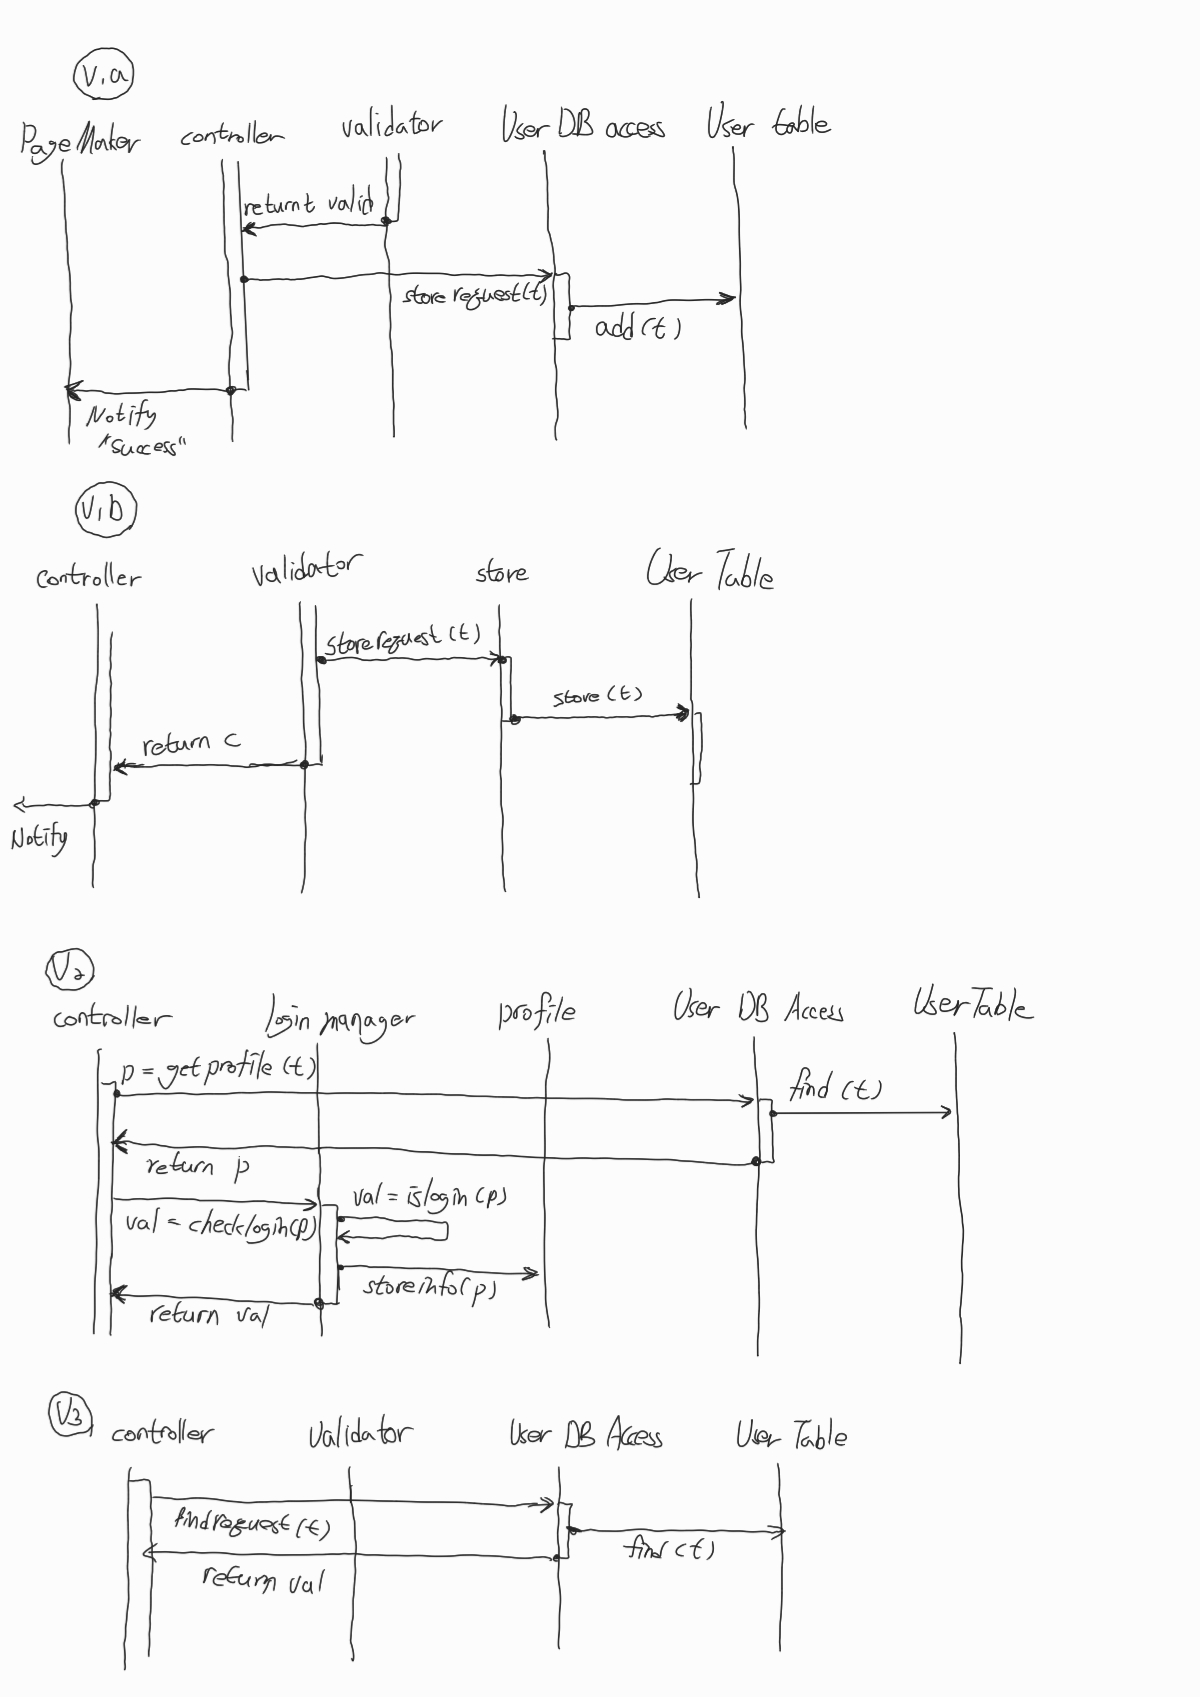 V.a
PageMaker controller validator User DB access User table
return t valid
store request(t)
add (t)
Notify
"Success"
V.b
controller validator store User Table
store request (t)
store (t)
return c
Notify
V2
controller login manager profile User DB Access User Table
p = get profile (t)
find (t)
return p
val = islogin (p)
val = checklogin(p)
storeinfo(p)
return val
V3
controller Validator User DB Access User Table
findrequest (t)
find (t)
return val